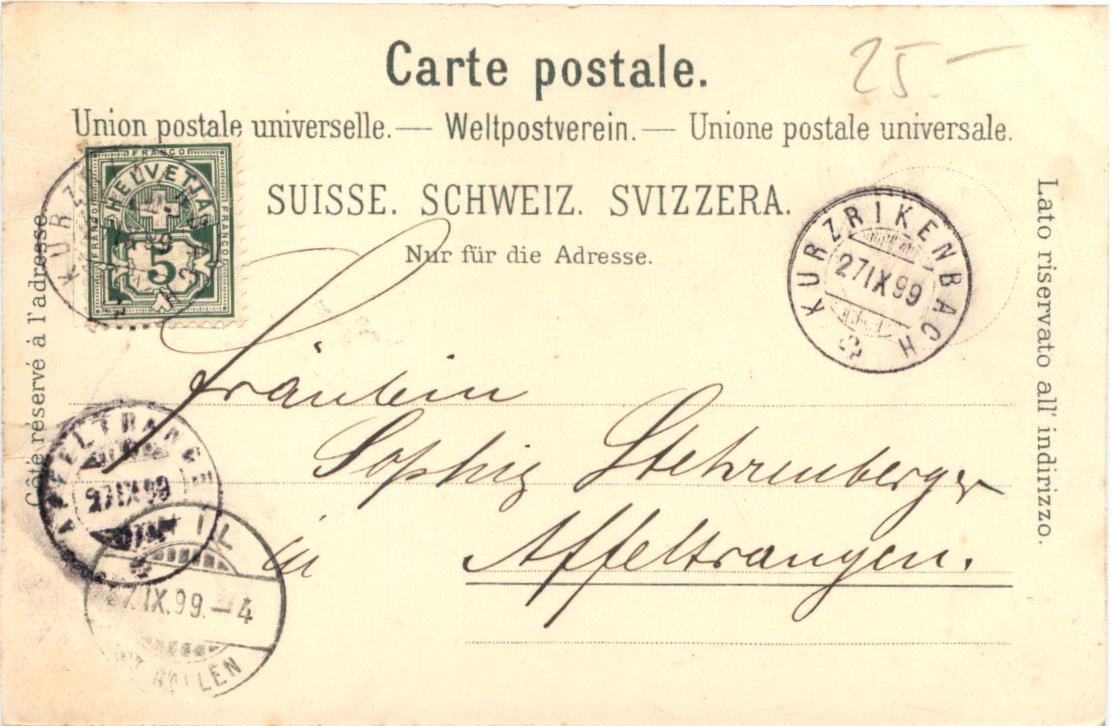 Carte postale.
25.-
Union postale universelle. — Weltpostverein. — Unione postale universale.
SUISSE. SCHWEIZ. SVIZZERA.
Nur für die Adresse.
Côté réservé à l'adresse.
Lato riservato all' indirizzo.
FRANCO
FRANCO
FRANCO
HELVETIA
5
KURZ
KURZRIKENBACH
27 IX 99
Fräulein
Sophie Stehrenberger
in Affeltrangen.
AFFELTRANGE
27 IX 99
IL
27.IX.99.-4
GALLEN